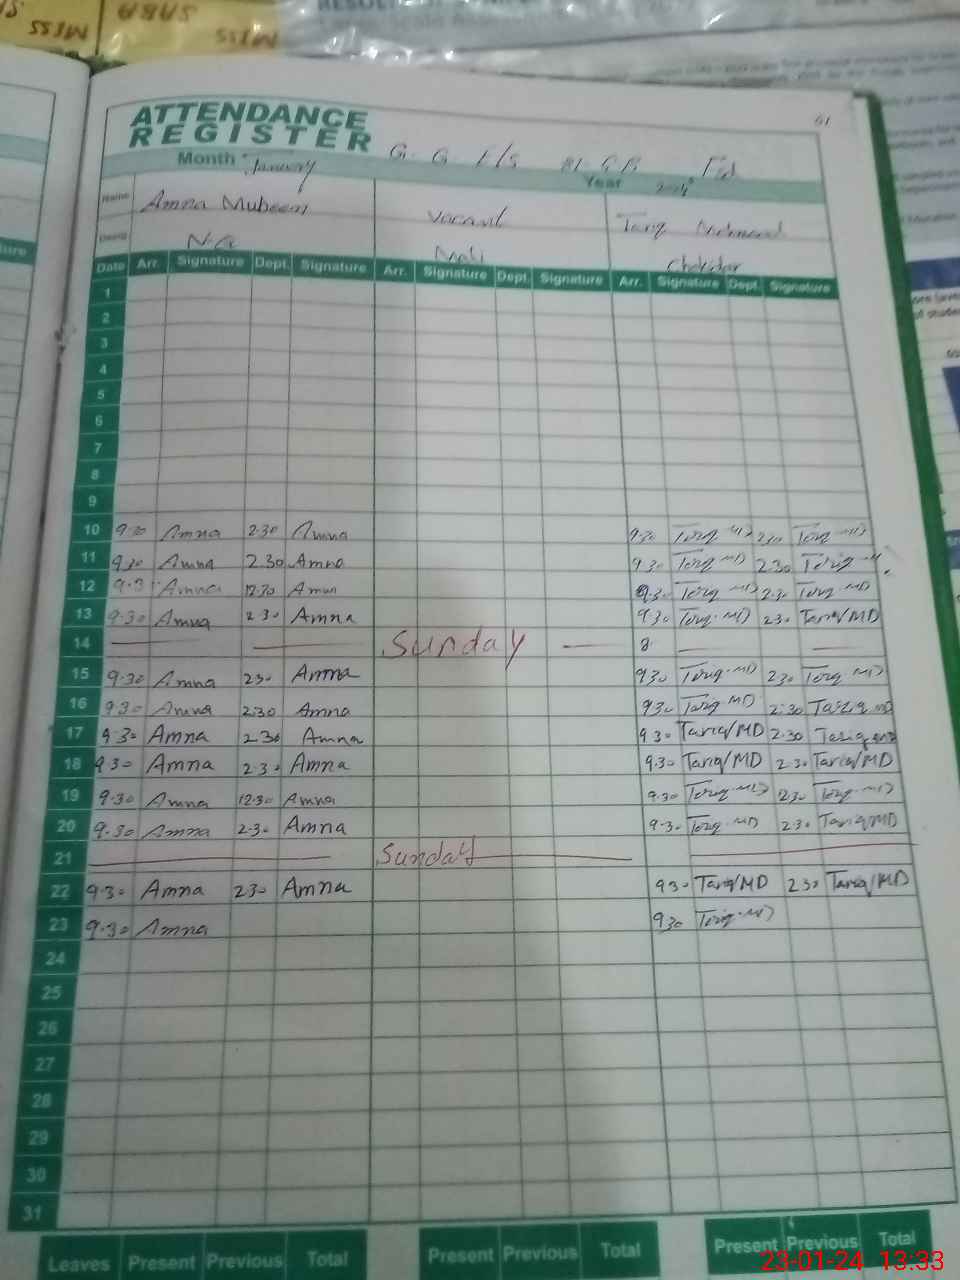 MISS
SABA
MISS
ATTENDANCE
REGISTER
61
Month January
Year
Name Amna Mubeen Vacant Tariq
Desig N.Q Mali Chokidar
Date Arr. Signature Dept. Signature Arr. Signature Dept. Signature Arr. Signature Dept. Signature
1
2
3
4
5
6
7
8
9
10 9.30 Amna 2.30 Amna 9.30 Tariq MD 2.30 Tariq MD
11 9.30 Amna 2.30 Amna 9.30 Tariq MD 2.30 Tariq
12 9.3 Amna 12.30 Amna 9.30 Tariq MD 2.30 Tariq MD
13 9.30 Amna 2.30 Amna 9.30 Tariq MD 2.30 Tariq/MD
14 Sunday
15 9.30 Amna 2.30 Amna 9.30 Tariq MD 2.30 Tariq MD
16 9.30 Amna 2.30 Amna 9.30 Tariq MD 2.30 Tariq MD
17 9.30 Amna 2.30 Amna 9.30 Tariq/MD 2.30 Tariq
18 9.30 Amna 2.30 Amna 9.30 Tariq/MD 2.30 Tariq/MD
19 9.30 Amna 12.30 Amna 9.30 Tariq MD 2.30 Tariq MD
20 9.30 Amna 2.30 Amna 9.30 Tariq MD 2.30 Tariq/MD
21 Sunday
22 9.30 Amna 2.30 Amna 9.30 Tariq/MD 2.30 Tariq/MD
23 9.30 Amna 9.30 Tariq MD
24
25
26
27
28
29
30
31
Leaves Present Previous Total Present Previous Total Present Previous Total
23-01-24 13:33